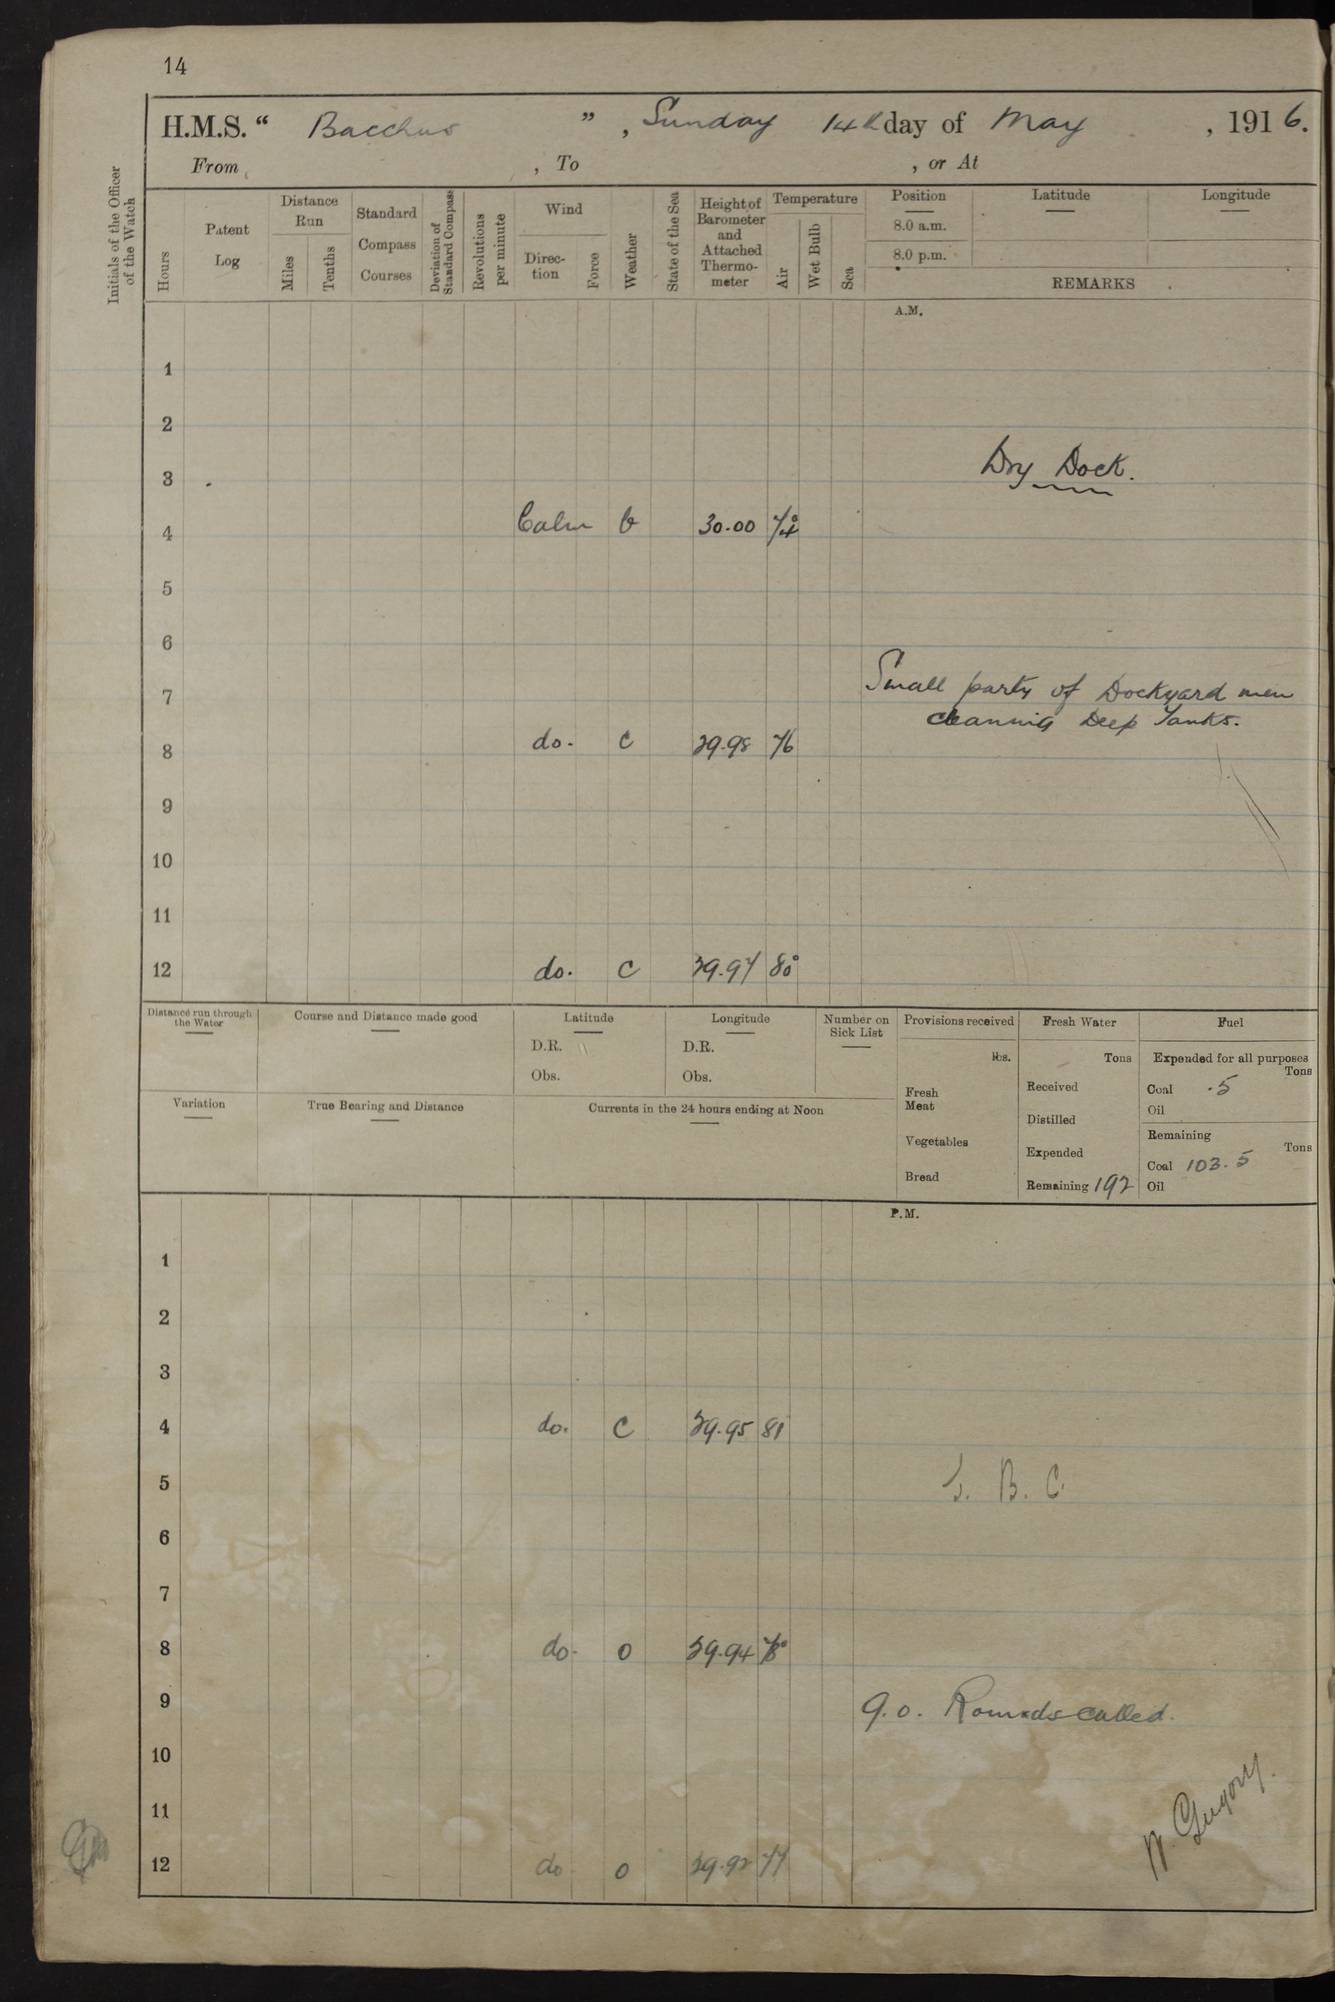 14
H.M.S. “ Bacchus ” , Sunday 14th day of May , 1916.
From , To , or At
Initials of the Officer of the Watch
Hours
Patent Log
Distance Run
Miles
Tenths
Standard Compass Courses
Deviation of Standard Compass
Revolutions per minute
Wind
Direction
Force
Weather
State of the Sea
Height of Barometer and Attached Thermometer
Temperature
Air
Wet Bulb
Sea
Position Latitude Longitude
8.0 a.m.
8.0 p.m.
REMARKS
A.M.
1
2
Dry Dock.
3
4 Calm b 30.00 74°
5
6
7 Small party of Dockyard men
cleaning Deep Tanks.
8 do. c 29.98 76
9
10
11
12 do. c 29.97 80°
Distance run through the Water
Course and Distance made good
Latitude
D.R.
Obs.
Longitude
D.R.
Obs.
Number on Sick List
Provisions received
lbs.
Fresh Meat
Vegetables
Bread
Fresh Water
Tons
Received
Distilled
Expended
Remaining 192
Fuel
Expended for all purposes
Tons
Coal .5
Oil
Remaining
Tons
Coal 103.5
Oil
Variation
True Bearing and Distance
Currents in the 24 hours ending at Noon
P.M.
1
2
3
4 do. c 29.95 81
5 B. C.
6
7
8 do. o 29.94 78°
9 9.0. Rounds called.
10
11
12 do. o 29.92 77
W. Gregory.